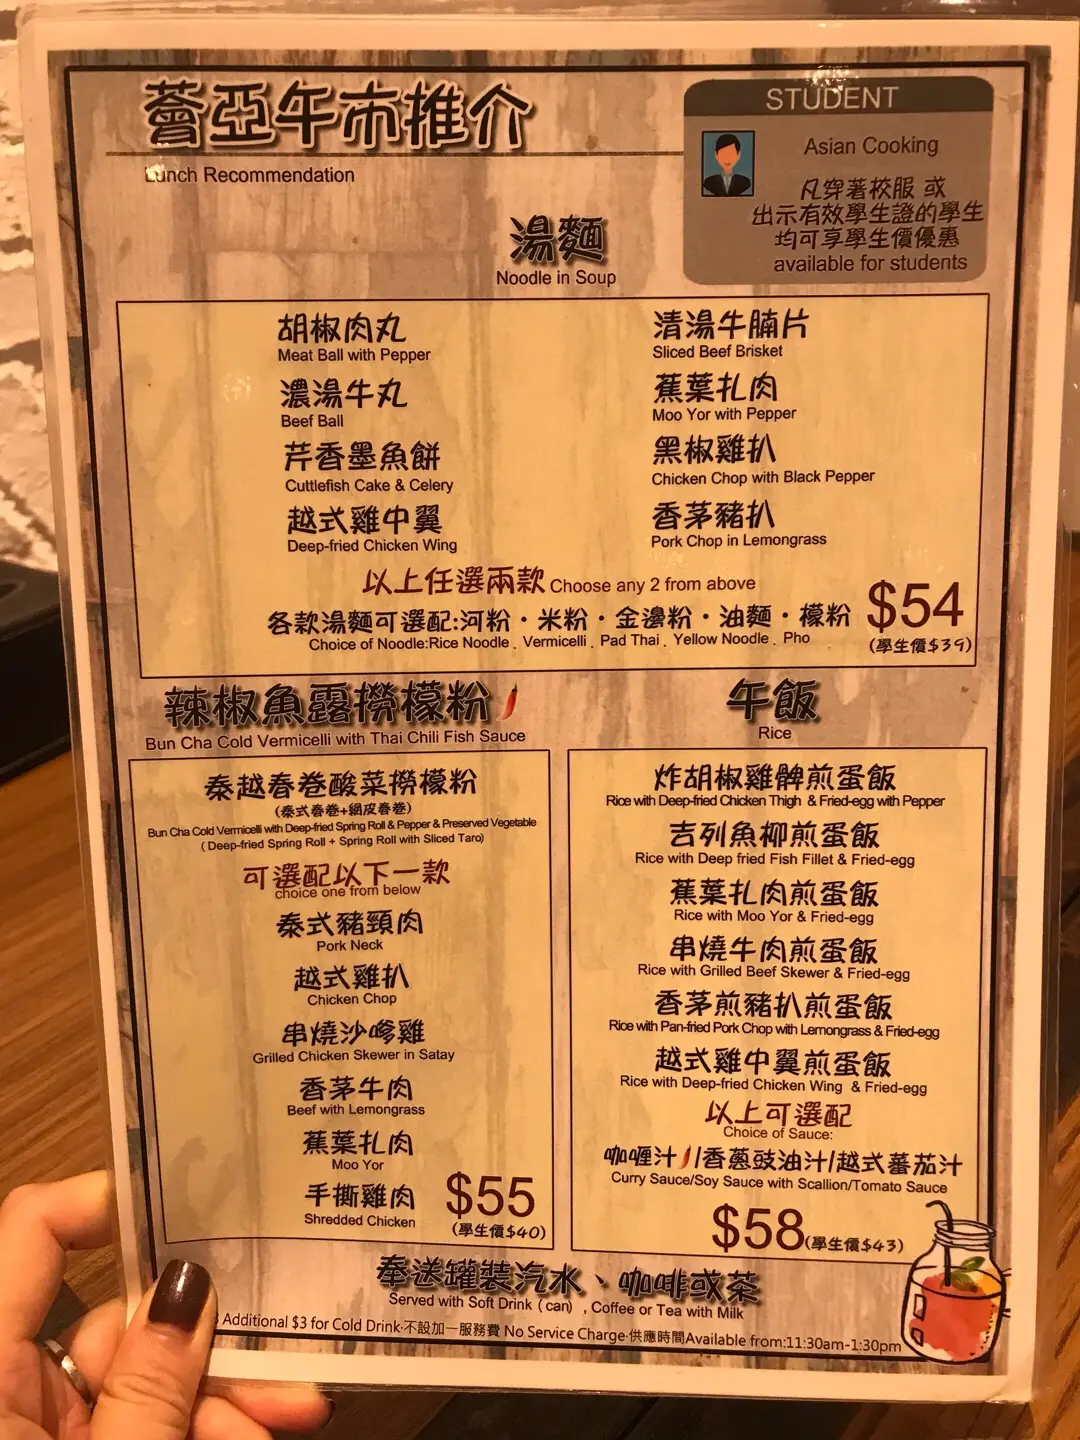 薈亞午市推介
Lunch Recommendation
STUDENT
Asian Cooking
凡穿著校服 或
出示有效學生證的學生
均可享學生價優惠
available for students
湯麵
Noodle in Soup
胡椒肉丸
Meat Ball with Pepper
濃湯牛丸
Beef Ball
芹香墨魚餅
Cuttlefish Cake & Celery
越式雞中翼
Deep-fried Chicken Wing
清湯牛腩片
Sliced Beef Brisket
蕉葉扎肉
Moo Yor with Pepper
黑椒雞扒
Chicken Chop with Black Pepper
香茅豬扒
Pork Chop in Lemongrass
以上任選兩款 Choose any 2 from above
各款湯麵可選配:河粉・米粉・金邊粉・油麵・檬粉
Choice of Noodle:Rice Noodle . Vermicelli . Pad Thai . Yellow Noodle . Pho
$54
(學生價$39)
辣椒魚露撈檬粉
Bun Cha Cold Vermicelli with Thai Chili Fish Sauce
泰越春卷酸菜撈檬粉
(泰式春卷+網皮春卷)
Bun Cha Cold Vermicelli with Deep-fried Spring Roll & Pepper & Preserved Vegetable
( Deep-fried Spring Roll + Spring Roll with Sliced Taro)
可選配以下一款
choice one from below
泰式豬頸肉
Pork Neck
越式雞扒
Chicken Chop
串燒沙嗲雞
Grilled Chicken Skewer in Satay
香茅牛肉
Beef with Lemongrass
蕉葉扎肉
Moo Yor
手撕雞肉
Shredded Chicken
$55
(學生價$40)
午飯
Rice
炸胡椒雞髀煎蛋飯
Rice with Deep-fried Chicken Thigh & Fried-egg with Pepper
吉列魚柳煎蛋飯
Rice with Deep fried Fish Fillet & Fried-egg
蕉葉扎肉煎蛋飯
Rice with Moo Yor & Fried-egg
串燒牛肉煎蛋飯
Rice with Grilled Beef Skewer & Fried-egg
香茅煎豬扒煎蛋飯
Rice with Pan-fried Pork Chop with Lemongrass & Fried-egg
越式雞中翼煎蛋飯
Rice with Deep-fried Chicken Wing & Fried-egg
以上可選配
Choice of Sauce:
咖喱汁/香蔥豉油汁/越式蕃茄汁
Curry Sauce/Soy Sauce with Scallion/Tomato Sauce
$58(學生價$43)
奉送罐裝汽水、咖啡或茶
Served with Soft Drink ( can) , Coffee or Tea with Milk
Additional $3 for Cold Drink·不設加一服務費 No Service Charge·供應時間Available from:11:30am-1:30pm